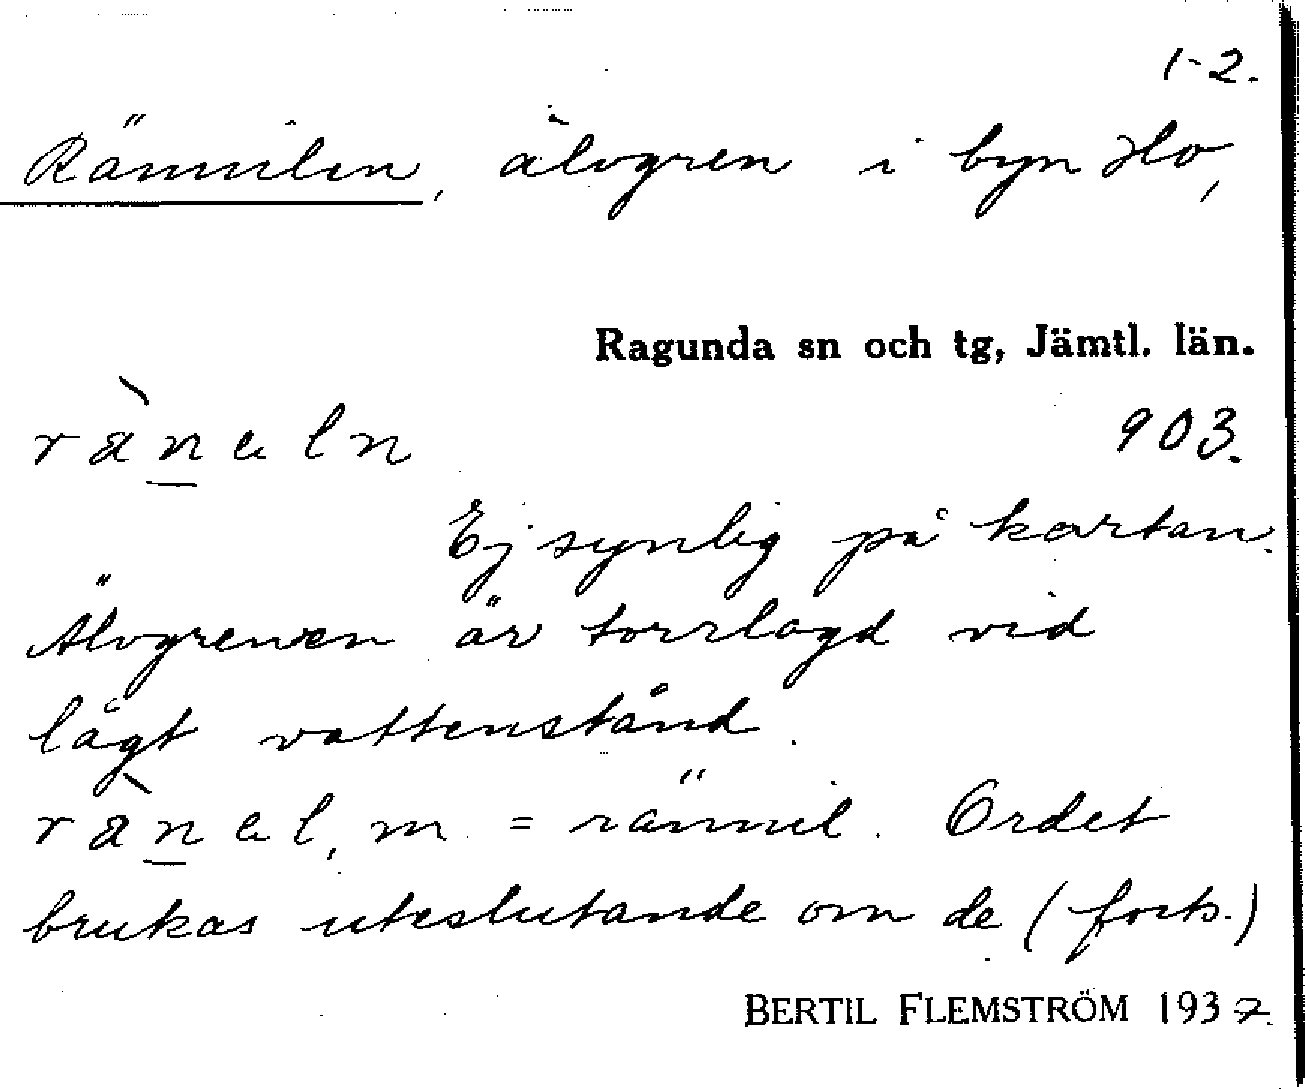 1-2.
Rännilen, älvgren i byn Ho,
Ragunda sn och tg, Jämtl. län.
rän̲aln
903.
Ej synlig på kartan.
Älvgrenen är torrlagd vid
lågt vattenstånd.
rän̲al, m. = rännil. Ordet
brukas uteslutande om de (forts.)
BERTIL FLEMSTRÖM 1937